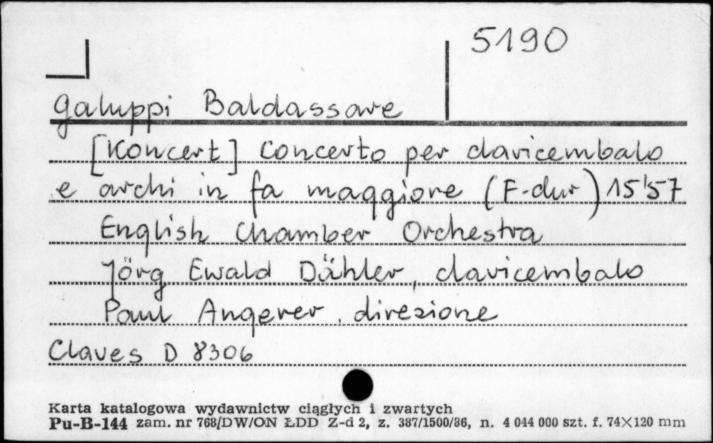 5190
Galuppi Baldassare
[Koncert] Concerto per clavicembalo
e archi in fa maggiore (F-dur) 15'57
English Chamber Orchestra
Jörg Ewald Dähler, clavicembalo
Paul Angerer, direzione
Claves D 8306
Karta katalogowa wydawnictw ciągłych i zwartych
Pu-B-144 zam. nr 768/DW/ON ŁDD Z-d 2, z. 387/1500/86, n. 4 044 000 szt. f. 74×120 mm